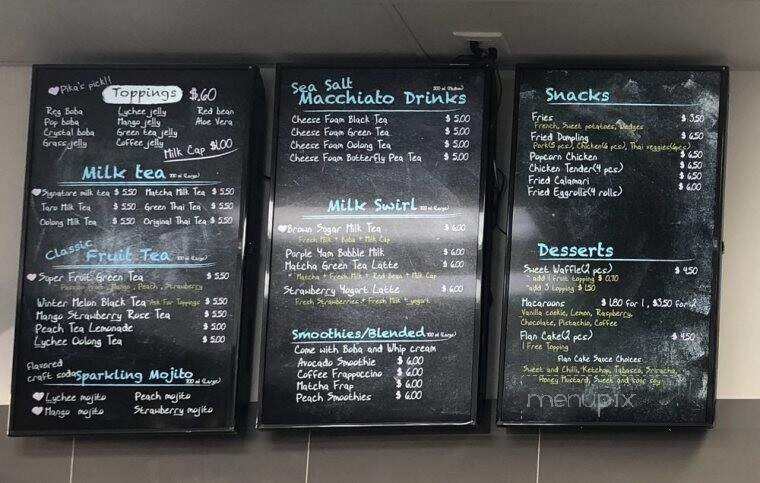 Pika's pick!!
Toppings $.60
Reg Boba Lychee jelly Red bean
Pop boba Mango jelly Aloe Vera
Crystal boba Green tea jelly
Grass jelly Coffee jelly
Milk Cap $1.00
Milk tea 700 ml (Large)
Signature milk tea $ 5.50 Matcha Milk Tea $ 5.50
Taro Milk Tea $ 5.50 Green Thai Tea $ 5.50
Oolong Milk Tea $ 5.50 Original Thai Tea $ 5.50
Classic
Fruit Tea 700 ml (Large)
Super Fruit Green Tea $ 5.50
Passion Fruit, Mango, Peach, Strawberry
Winter Melon Black Tea Ask For Toppings $ 5.50
Mango Strawberry Rose Tea $ 5.50
Peach Tea Lemonade $ 5.50
Lychee Oolong Tea $ 5.50
Flavored
craft soda Sparkling Mojito 700 ml (Large)
Lychee mojito Peach mojito
Mango mojito Strawberry mojito
Sea Salt 500 ml (Medium)
Macchiato Drinks
Cheese Foam Black Tea $ 5.00
Cheese Foam Green Tea $ 5.00
Cheese Foam Oolong Tea $ 5.00
Cheese Foam Butterfly Pea Tea $ 5.00
Milk Swirl 700 ml (Large)
Brown Sugar Milk Tea $ 6.00
Fresh Milk + Boba + Milk Cap
Purple Yam Bubble Milk $ 6.00
Matcha Green Tea Latte $ 6.00
Matcha + Fresh Milk + Red Bean + Milk Cap
Strawberry Yogurt Latte $ 6.00
Fresh Strawberries + Fresh Milk + yogurt
Smoothies/Blended 700 ml (Large)
Come with Boba and Whip cream
Avocado Smoothie $ 6.00
Coffee Frappuccino $ 6.00
Matcha Frap $ 6.00
Peach Smoothies $ 6.00
Snacks
Fries $ 3.50
French, Sweet potatoes, Wedges
Fried Dumpling $ 6.50
Pork(5 pcs), Chicken(6 pcs), Thai veggies(6pcs)
Popcorn Chicken $ 6.50
Chicken Tender(4 pcs) $ 6.50
Fried Calamari $ 6.50
Fried Eggrolls(4 rolls) $ 6.00
Desserts
Sweet Waffle(2 pcs) $ 4.50
*add 1 fruit topping $ 0.70
*add 3 topping $ 1.50
Macaroons $ 1.80 for 1, $3.50 for 2
Vanilla cookie, Lemon, Raspberry,
Chocolate, Pistachio, Coffee
Flan Cake(2 pcs) $ 4.50
1 Free Topping
Flan Cake Sauce Choices
Sweet and Chilli, Ketchup, Tabasco, Sriracha,
Honey Mustard, Sweet and sour soy
menupix